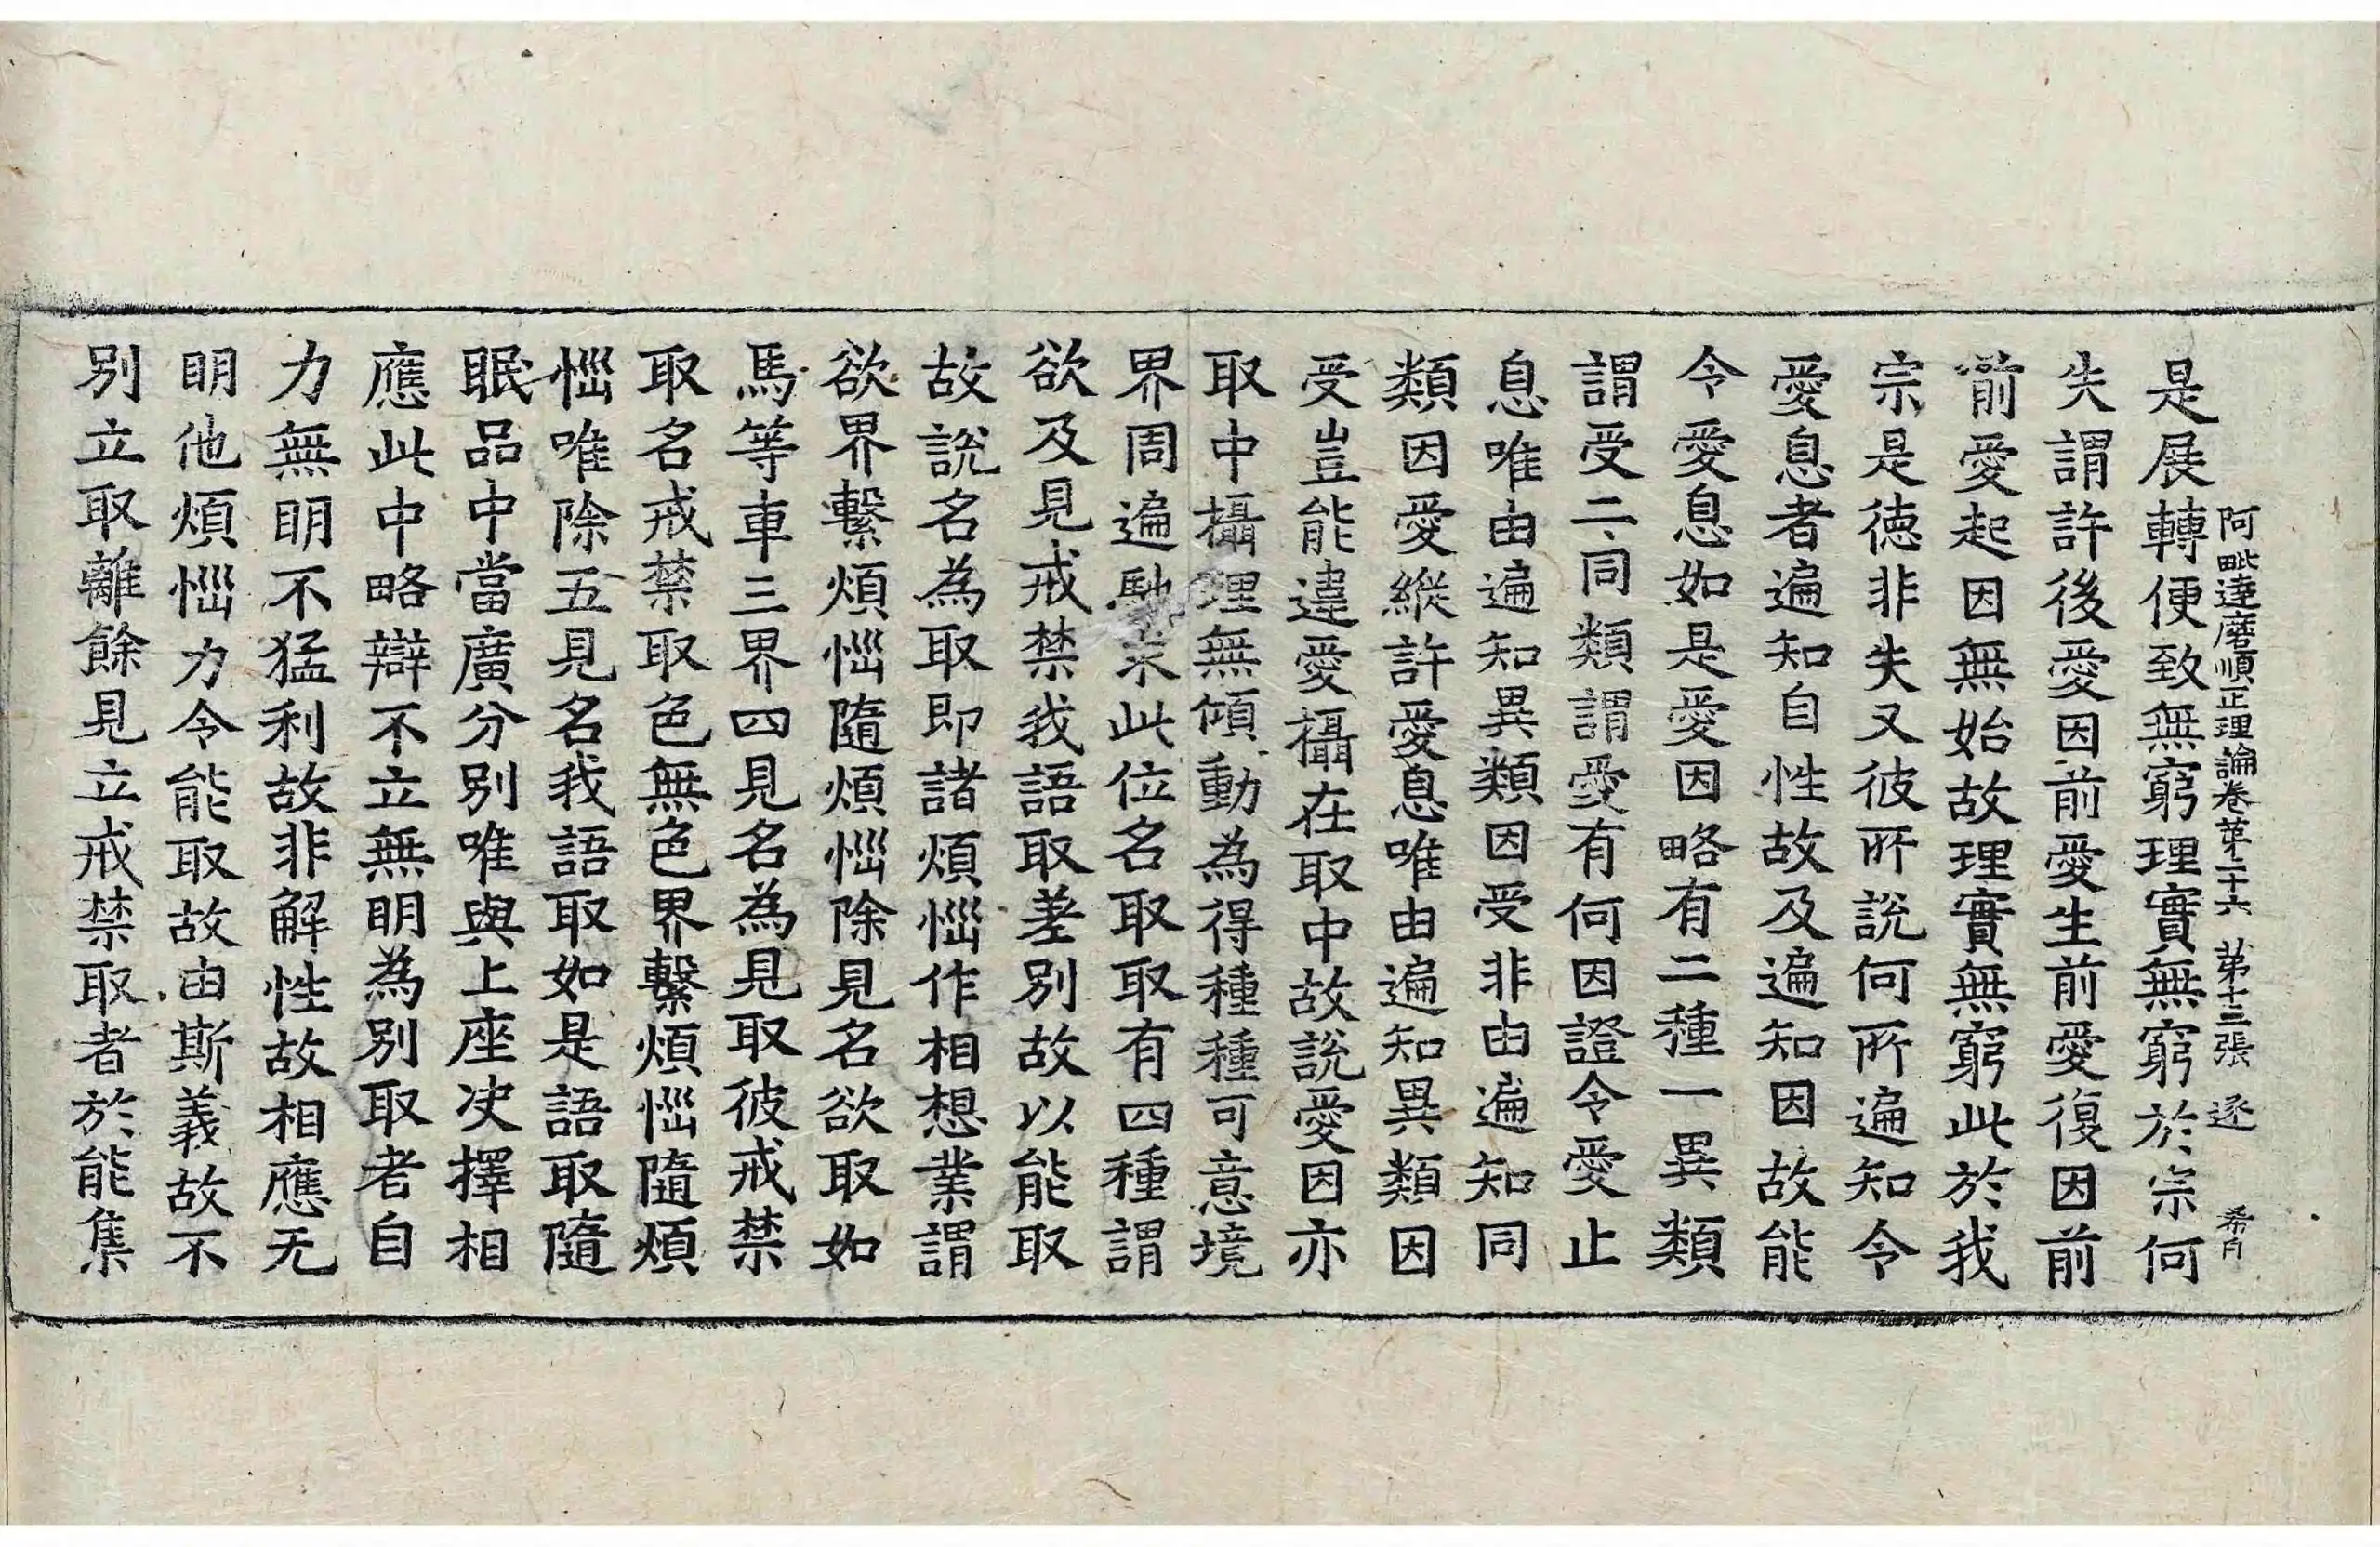 阿毗達磨順正理論卷第二十六 第十三張 逐 希冉
是展轉便致無窮理實無窮於宗何
失謂許後愛因前愛生前愛復因前
前愛起因無始故理實無窮此於我
宗是德非失又彼所說何所遍知令
愛息者遍知自性故及遍知因故能
令愛息如是愛因略有二種一異類
謂受二同類謂愛有何因證令愛止
息唯由遍知異類因受非由遍知同
類因愛縱許愛息唯由遍知異類因
受豈能違愛攝在取中故說愛因亦
取中攝理無傾動為得種種可意境
界周遍馳求此位名取取有四種謂
欲及見戒禁我語取差別故以能取
故說名為取即諸煩惱作相想業謂
欲界繫煩惱隨煩惱除見名欲取如
馬等車三界四見名為見取彼戒禁
取名戒禁取色無色界繫煩惱隨煩
惱唯除五見名我語取如是語取隨
眠品中當廣分別唯與上座决擇相
應此中略辯不立無明為別取者自
力無明不猛利故非解性故相應无
明他煩惱力令能取故由斯義故不
別立取離餘見立戒禁取者於能集